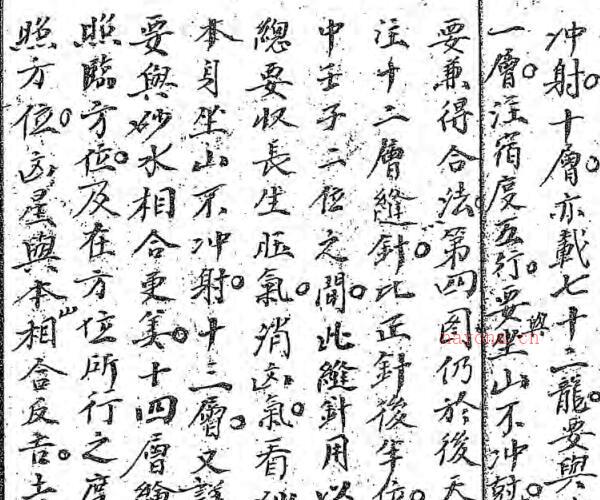 冲射。十層。亦載七十二龍。要與
一層。注宿度五行。要與坐山不冲射。
要兼得合法。第四圖仍於後天
注十二層縫針。比正針後半位。
中壬子二位之間。此縫針用以
總要收長生旺氣。消凶氣。看
本身坐山不冲射。十三層。又詳
要與砂水相合更美。十四層
照臨方位。及在方位所行之度
照方位。凶星與本山相合反吉。